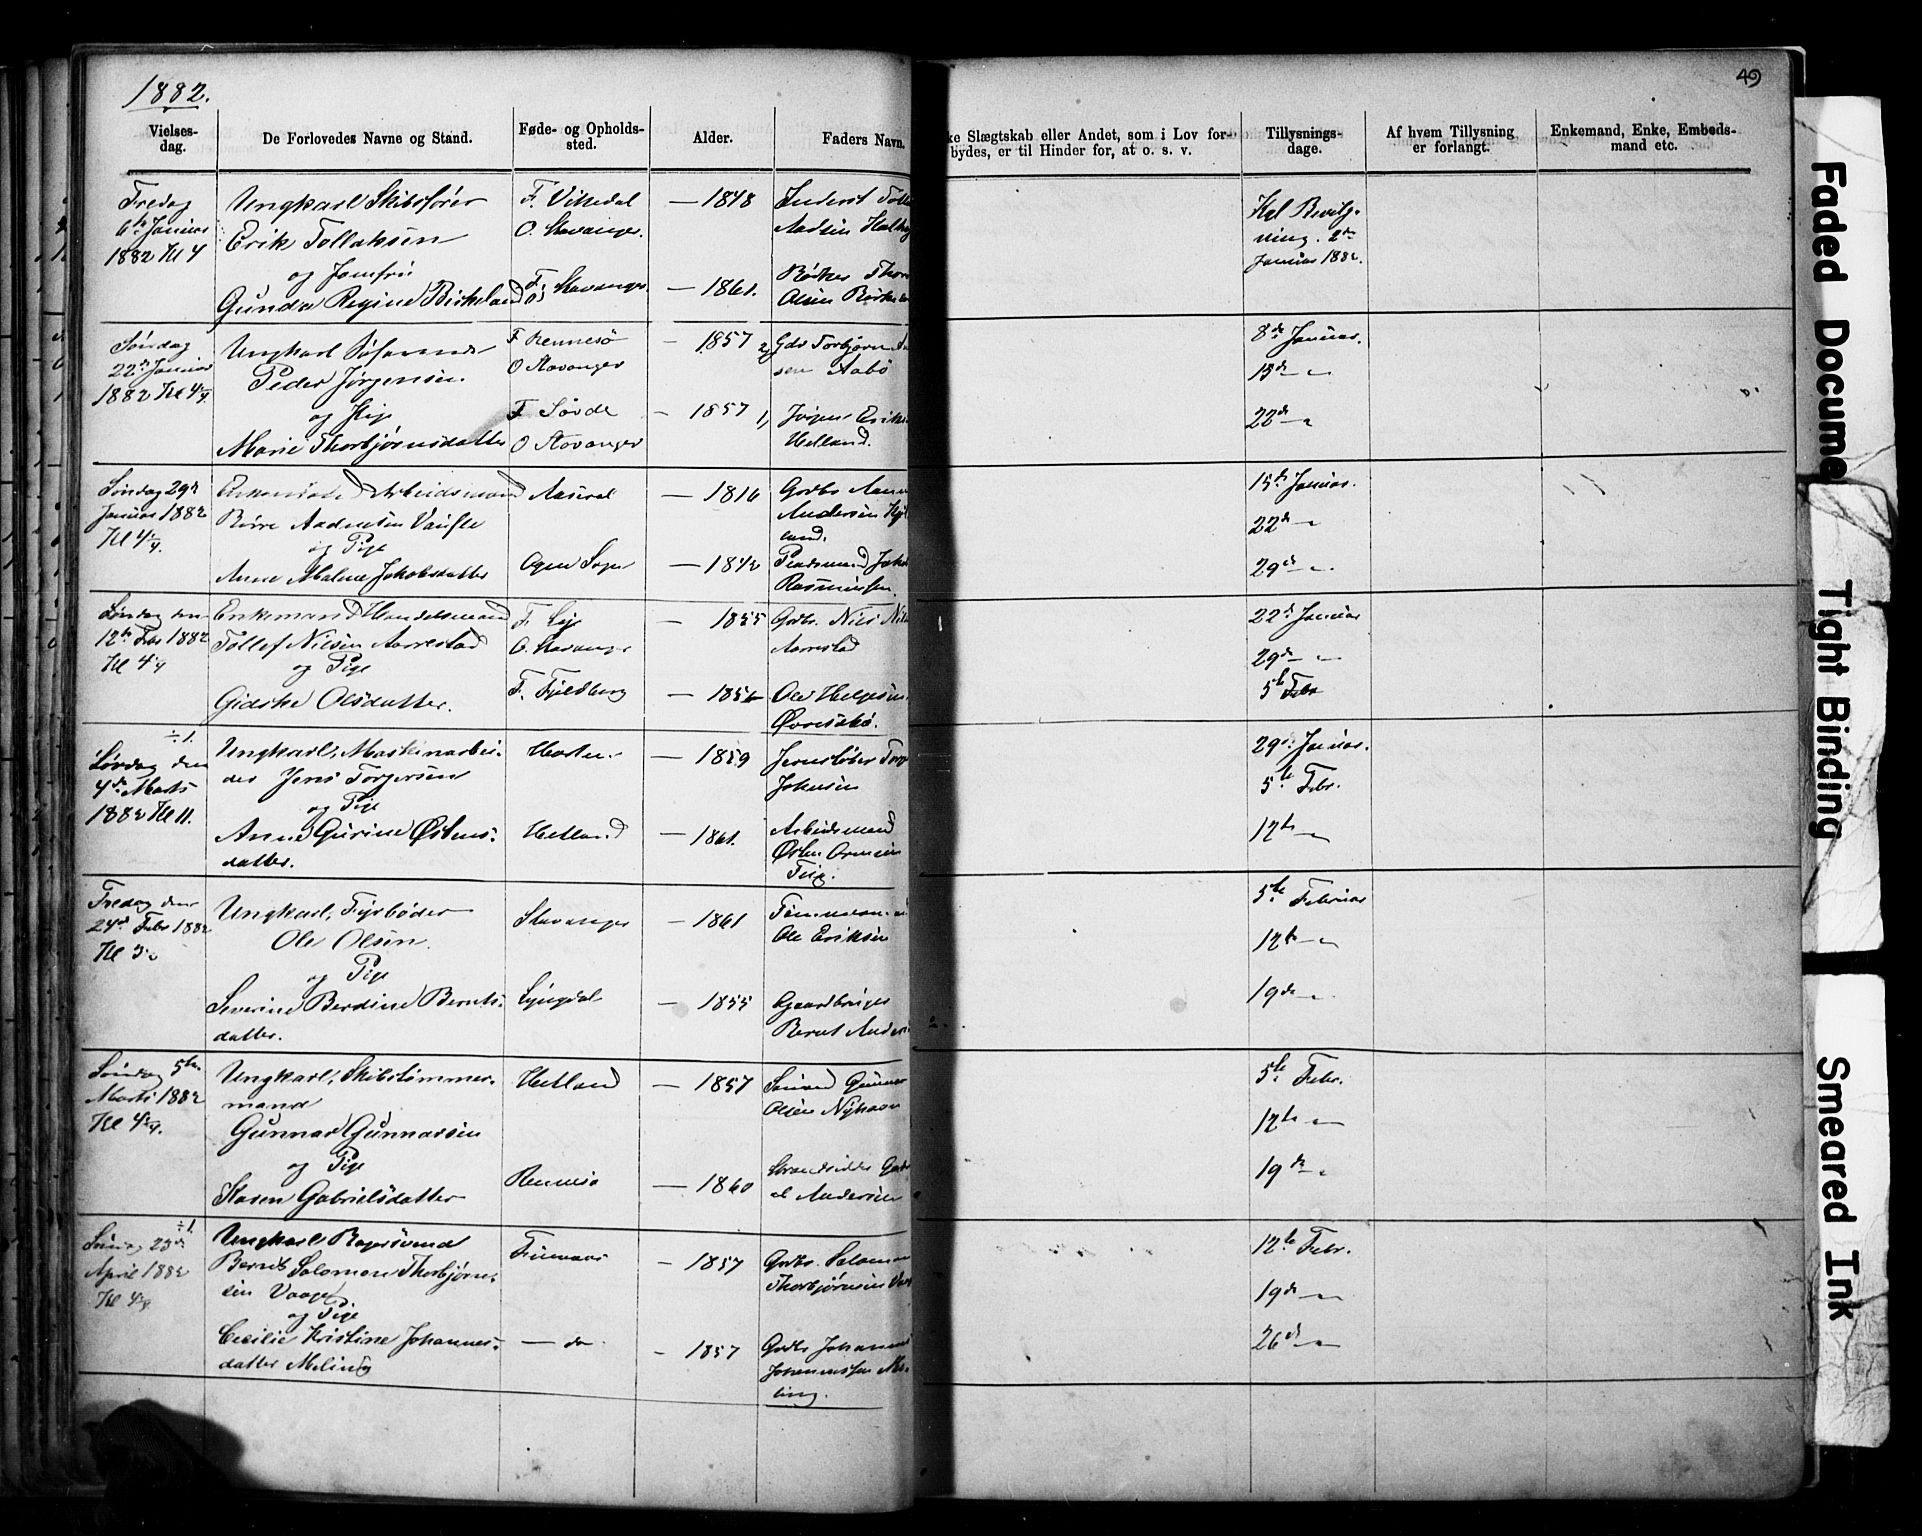 1882.
49
Vielses-
dag.
De Forlovedes Navne og Stand.
Føde- og Opholds-
sted.
Alder.
Faders Navn.
ke Slægtskab eller Andet, som i Lov for-
bydes, er til Hinder for, at o. s. v.
Tillysnings-
dage.
Af hvem Tillysning
er forlangt.
Enkemand, Enke, Embeds-
mand etc.
Fredag
6te Januar
1882 Kl 4
Ungkarl Skibsfører
Erik Tollaksen
og Jomfru
Gunda Regine Birkeland
F. Vikedal
O. Stavanger.
F. Stavanger.
— 1848
— 1861.
Aadsen
Rødker Thor
Olsen
Kgl Bevilg-
ning. 2de
Januar 1882.
Søndag
22de Januar
1882 Kl 4
Ungkarl
Peder Jørgensen
og Pige
Marie Thorbjørnsdatter
F Rennesø
O Stavanger
F Søvde
O Stavanger
— 1857
— 1857
2) Gdr Torbjørn
sen Aabø
1) Jørgen Erik
Helland.
8de Januar.
15de — "
22de — "
Søndag 29de
Januar 1882
Kl 4
Enkemand Arbeidsmand
Børre Aadnesen
og Pige
Anne Malene Jakobsdatter
Aaseral
Ogne Sogn
— 1816
— 1842
Gdbr
Andersen
land.
Pladsmand Jak
Rasmussen.
15de Januar.
22de — "
29de — "
Søndag den
12te Febr 1882
Kl 4
Enkemand Handelsmand
Tollef Nilsen Aarrestad
og Pige
Gidske Olsdatter.
O. Stavanger
F. Fjeldberg
— 1855
Gdbr. Nils
Aarrestad
Ole Helgesen
22de Januar
29de — "
5te Febr
÷ 1.
Lørdag den
4de Marts
1882 Kl 11.
Ungkarl, Maskinarbei-
der Jens Torgersen
og Pige
Anne Gurine Østens-
datter.
Hetland
— 1859
— 1861.
Johnsen
Arbeidsmand
Østen Ormsen
29de Januar.
5te Febr.
12te — "
Fredag den
24de Febr 1882
Kl 5
Ungkarl, Fyrbøder
Ole Olsen.
og Pige
Severine Berdine Bernts-
datter.
Stavanger
Lyngdal
— 1861
— 1855
Ole Eriksen
Gaardbruger
Bernt Anders
5te Februar
12te — "
19de — "
Søndag 5te
Marts 1882
Kl 4
Ungkarl, Skibstømmer-
mand
Gunnar Gunnarsen
og Pige
Karen Gabrielsdatter
Hetland
Rennesø
— 1857
— 1860
Sømand Gunnar
Olsen Nyhavn
Strandsidder Gabri
el Andersen
5te Febr.
12te — "
19de — "
÷ 1.
Søndag 23de
April 1882
Kl 4
Ungkarl Bagersvend
Bernt Salomon Thorbjørn-
sen Vaage
og Pige
Cecilie Kristine Johannes-
datter Meling
— do
— 1857
— 1857
Gdbr. Salomon
Thorbjørnsen
Gdbr Johannes
Johannessen Me-
ling.
12te Febr.
19de — "
26de — "
Faded Docume
Tight Binding
Smeared Ink